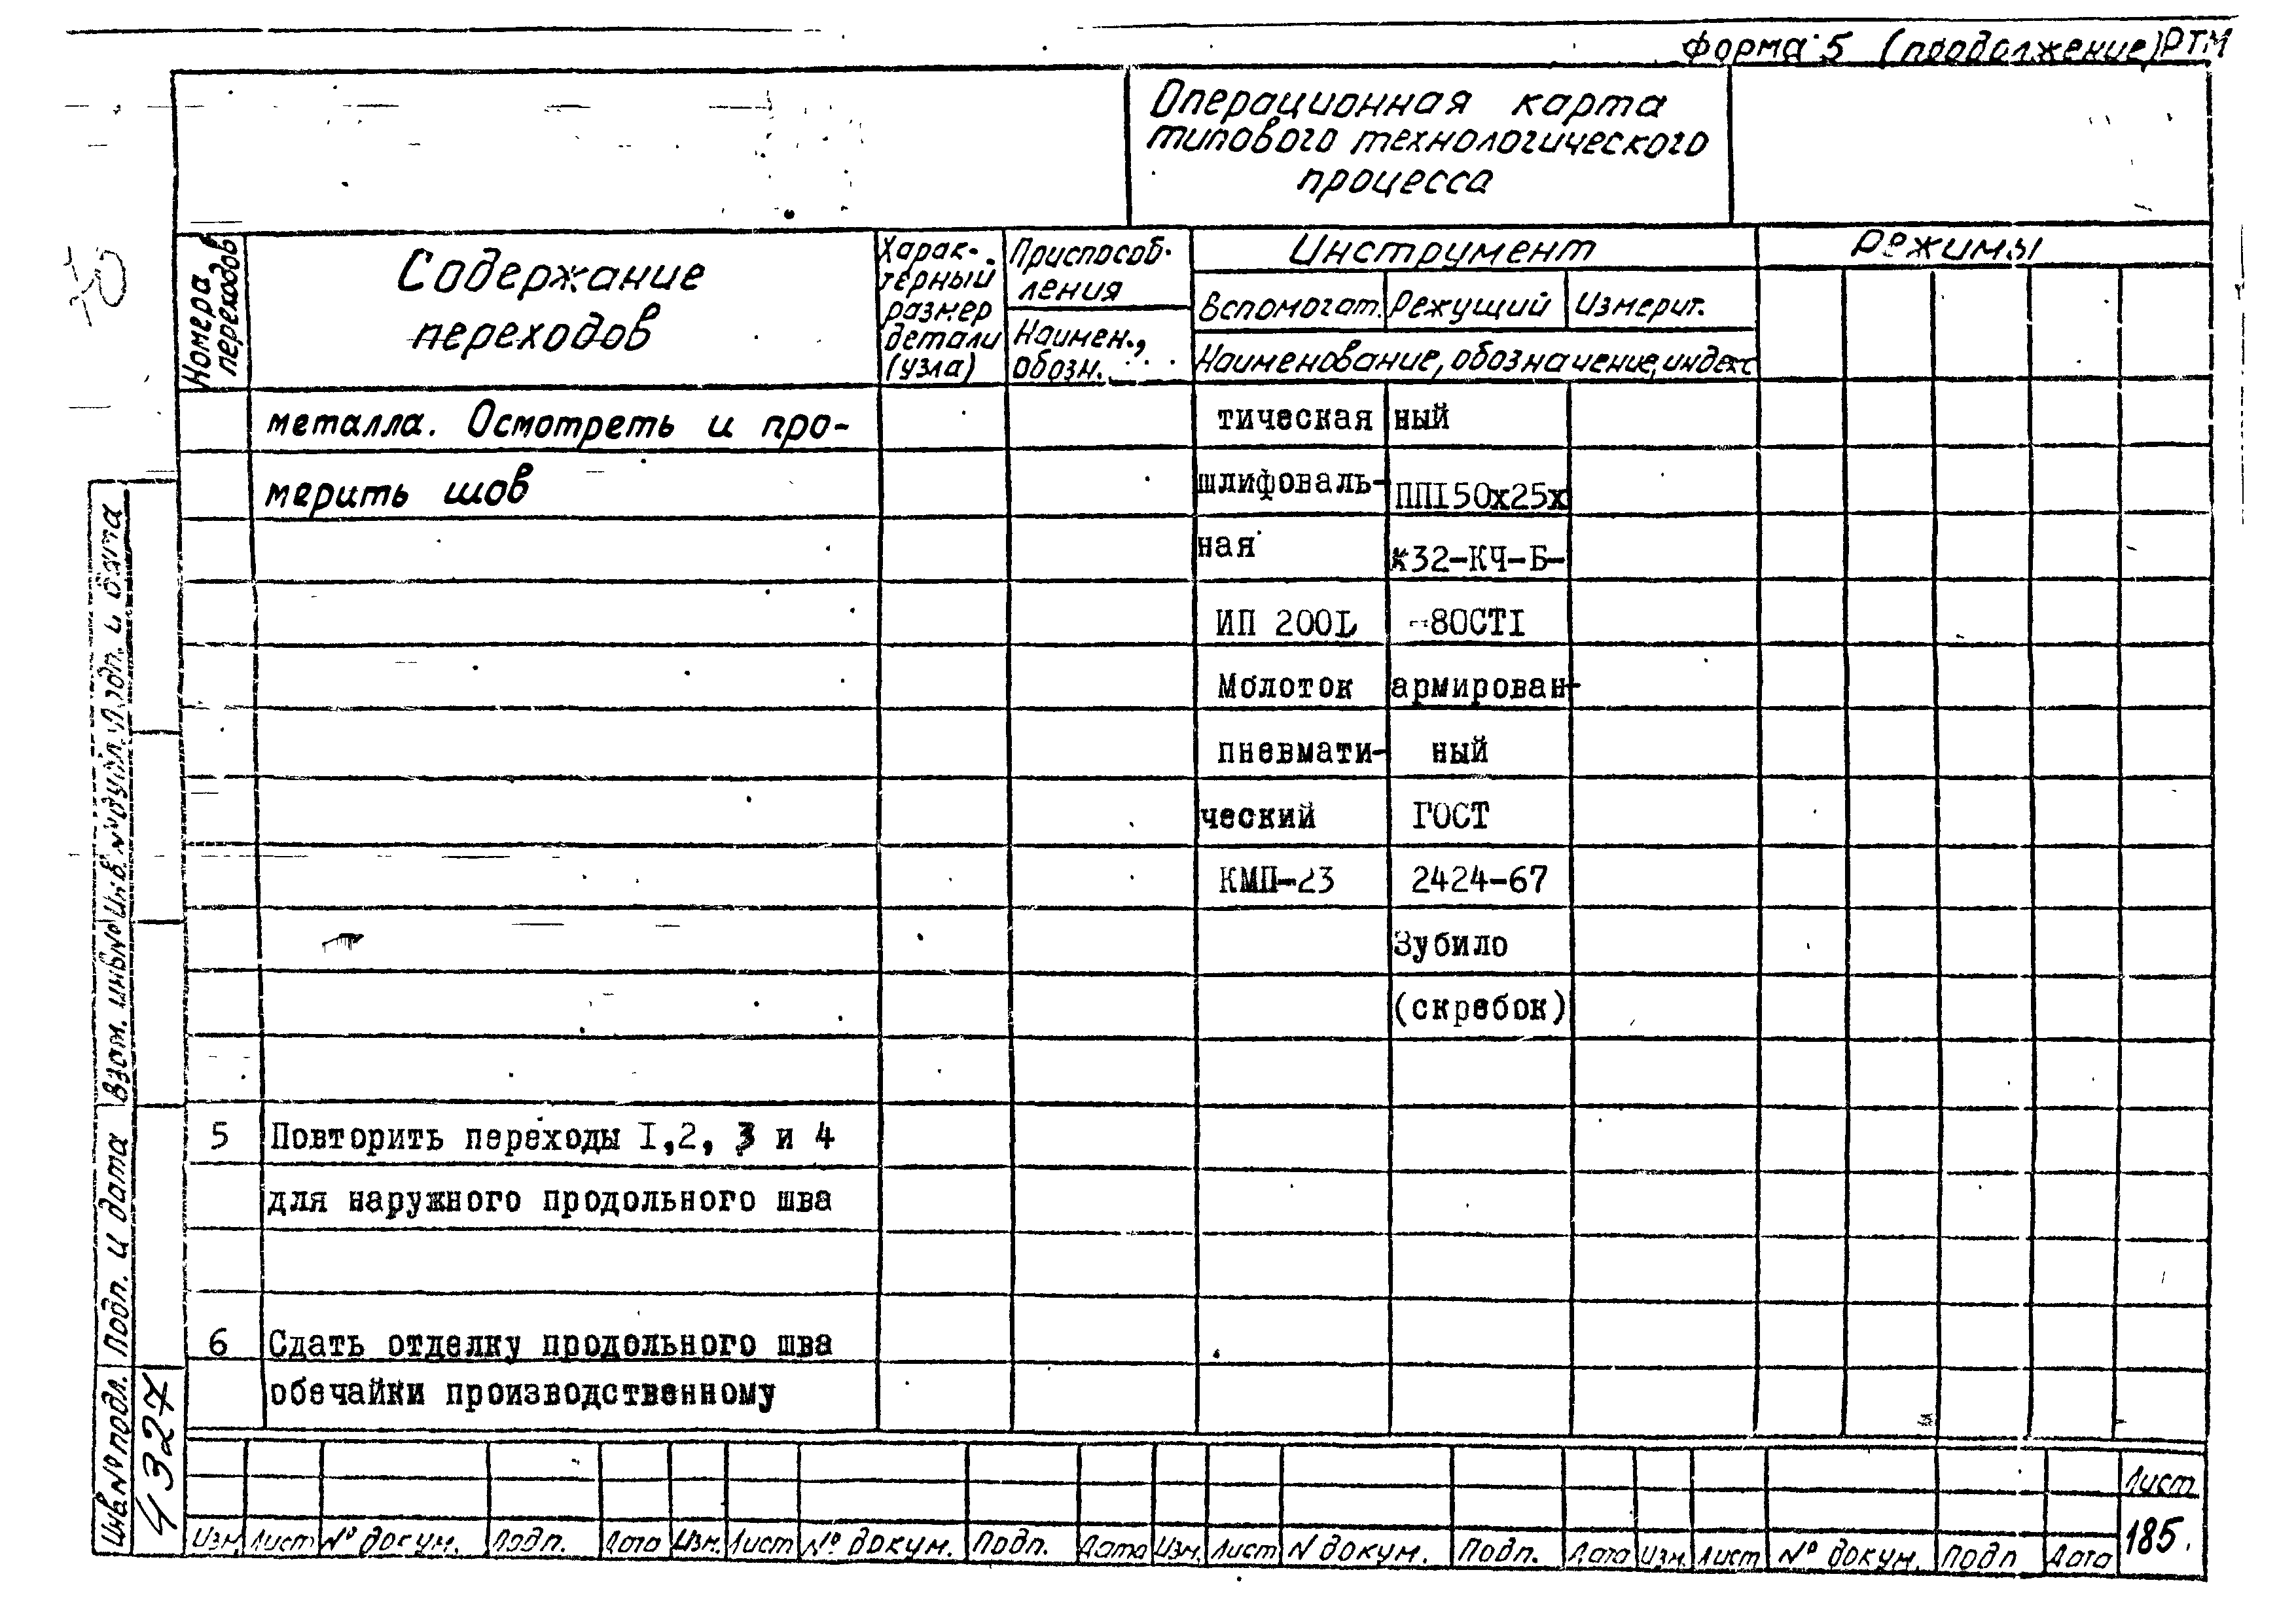 форма 5 (продолжение) РТМ
Операционная карта
типового технологического
процесса
Номера
переходов
Содержание
переходов
Харак-
терный
размер
детали
(узла)
Приспособ-
ления
Наимен.,
обозн.
Инструмент
Вспомогат. Режущий Измерит.
Наименование, обозначение, индекс
Режимы
металла. Осмотреть и про- тическая ный
мерить шов шлифоваль- ПП150х25х
ная х32-КЧ-Б-
ИП 2001 -80СТ1
Молоток армирован-
пневмати- ный
ческий ГОСТ
КМП-23 2424-67
Зубило
(скребок)
5 Повторить переходы I,2, 3 и 4
для наружного продольного шва
6 Сдать отделку продольного шва
обечайки производственному
Изм. Лист № докум. Подп. Дата Изм. Лист № докум. Подп. Дата Изм. Лист N докум. Подп. Дата Изм. Лист № докум. Подп Дата
Лист
185.
Инв.№ подл. Подп. и дата Взам. инв.№ Инв.№ дубл. Подп. и дата
4327